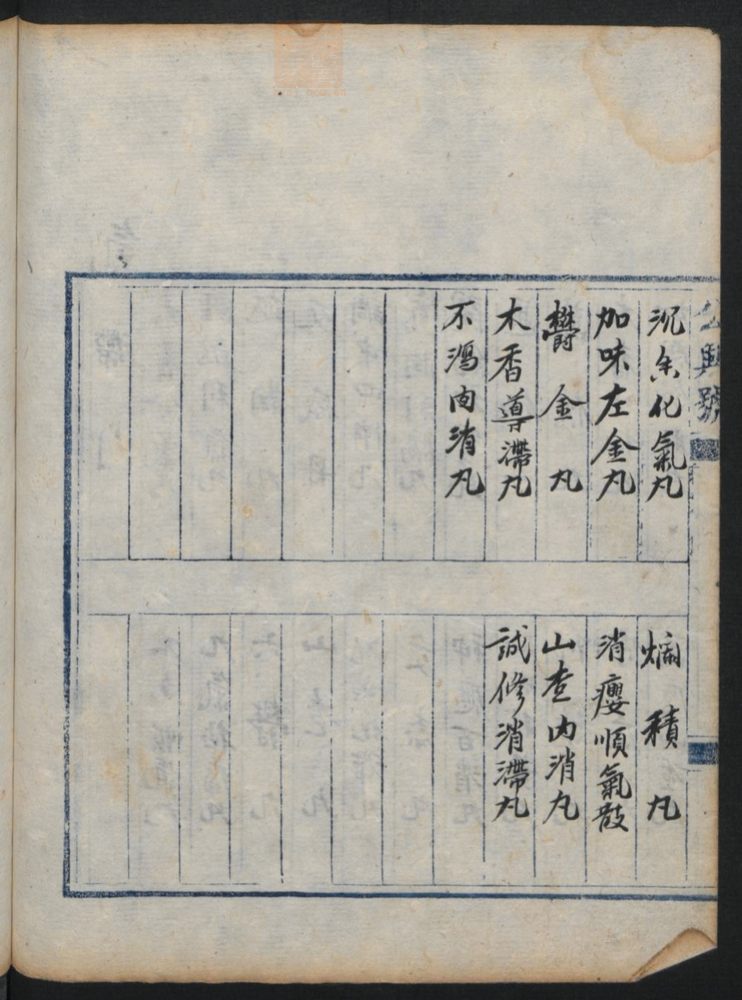 興號
沉香化氣丸
加味左金丸
鬱金丸
木香導滯丸
不瀉內消丸
煸積丸
消癭順氣散
山查內消丸
誠修消滯丸